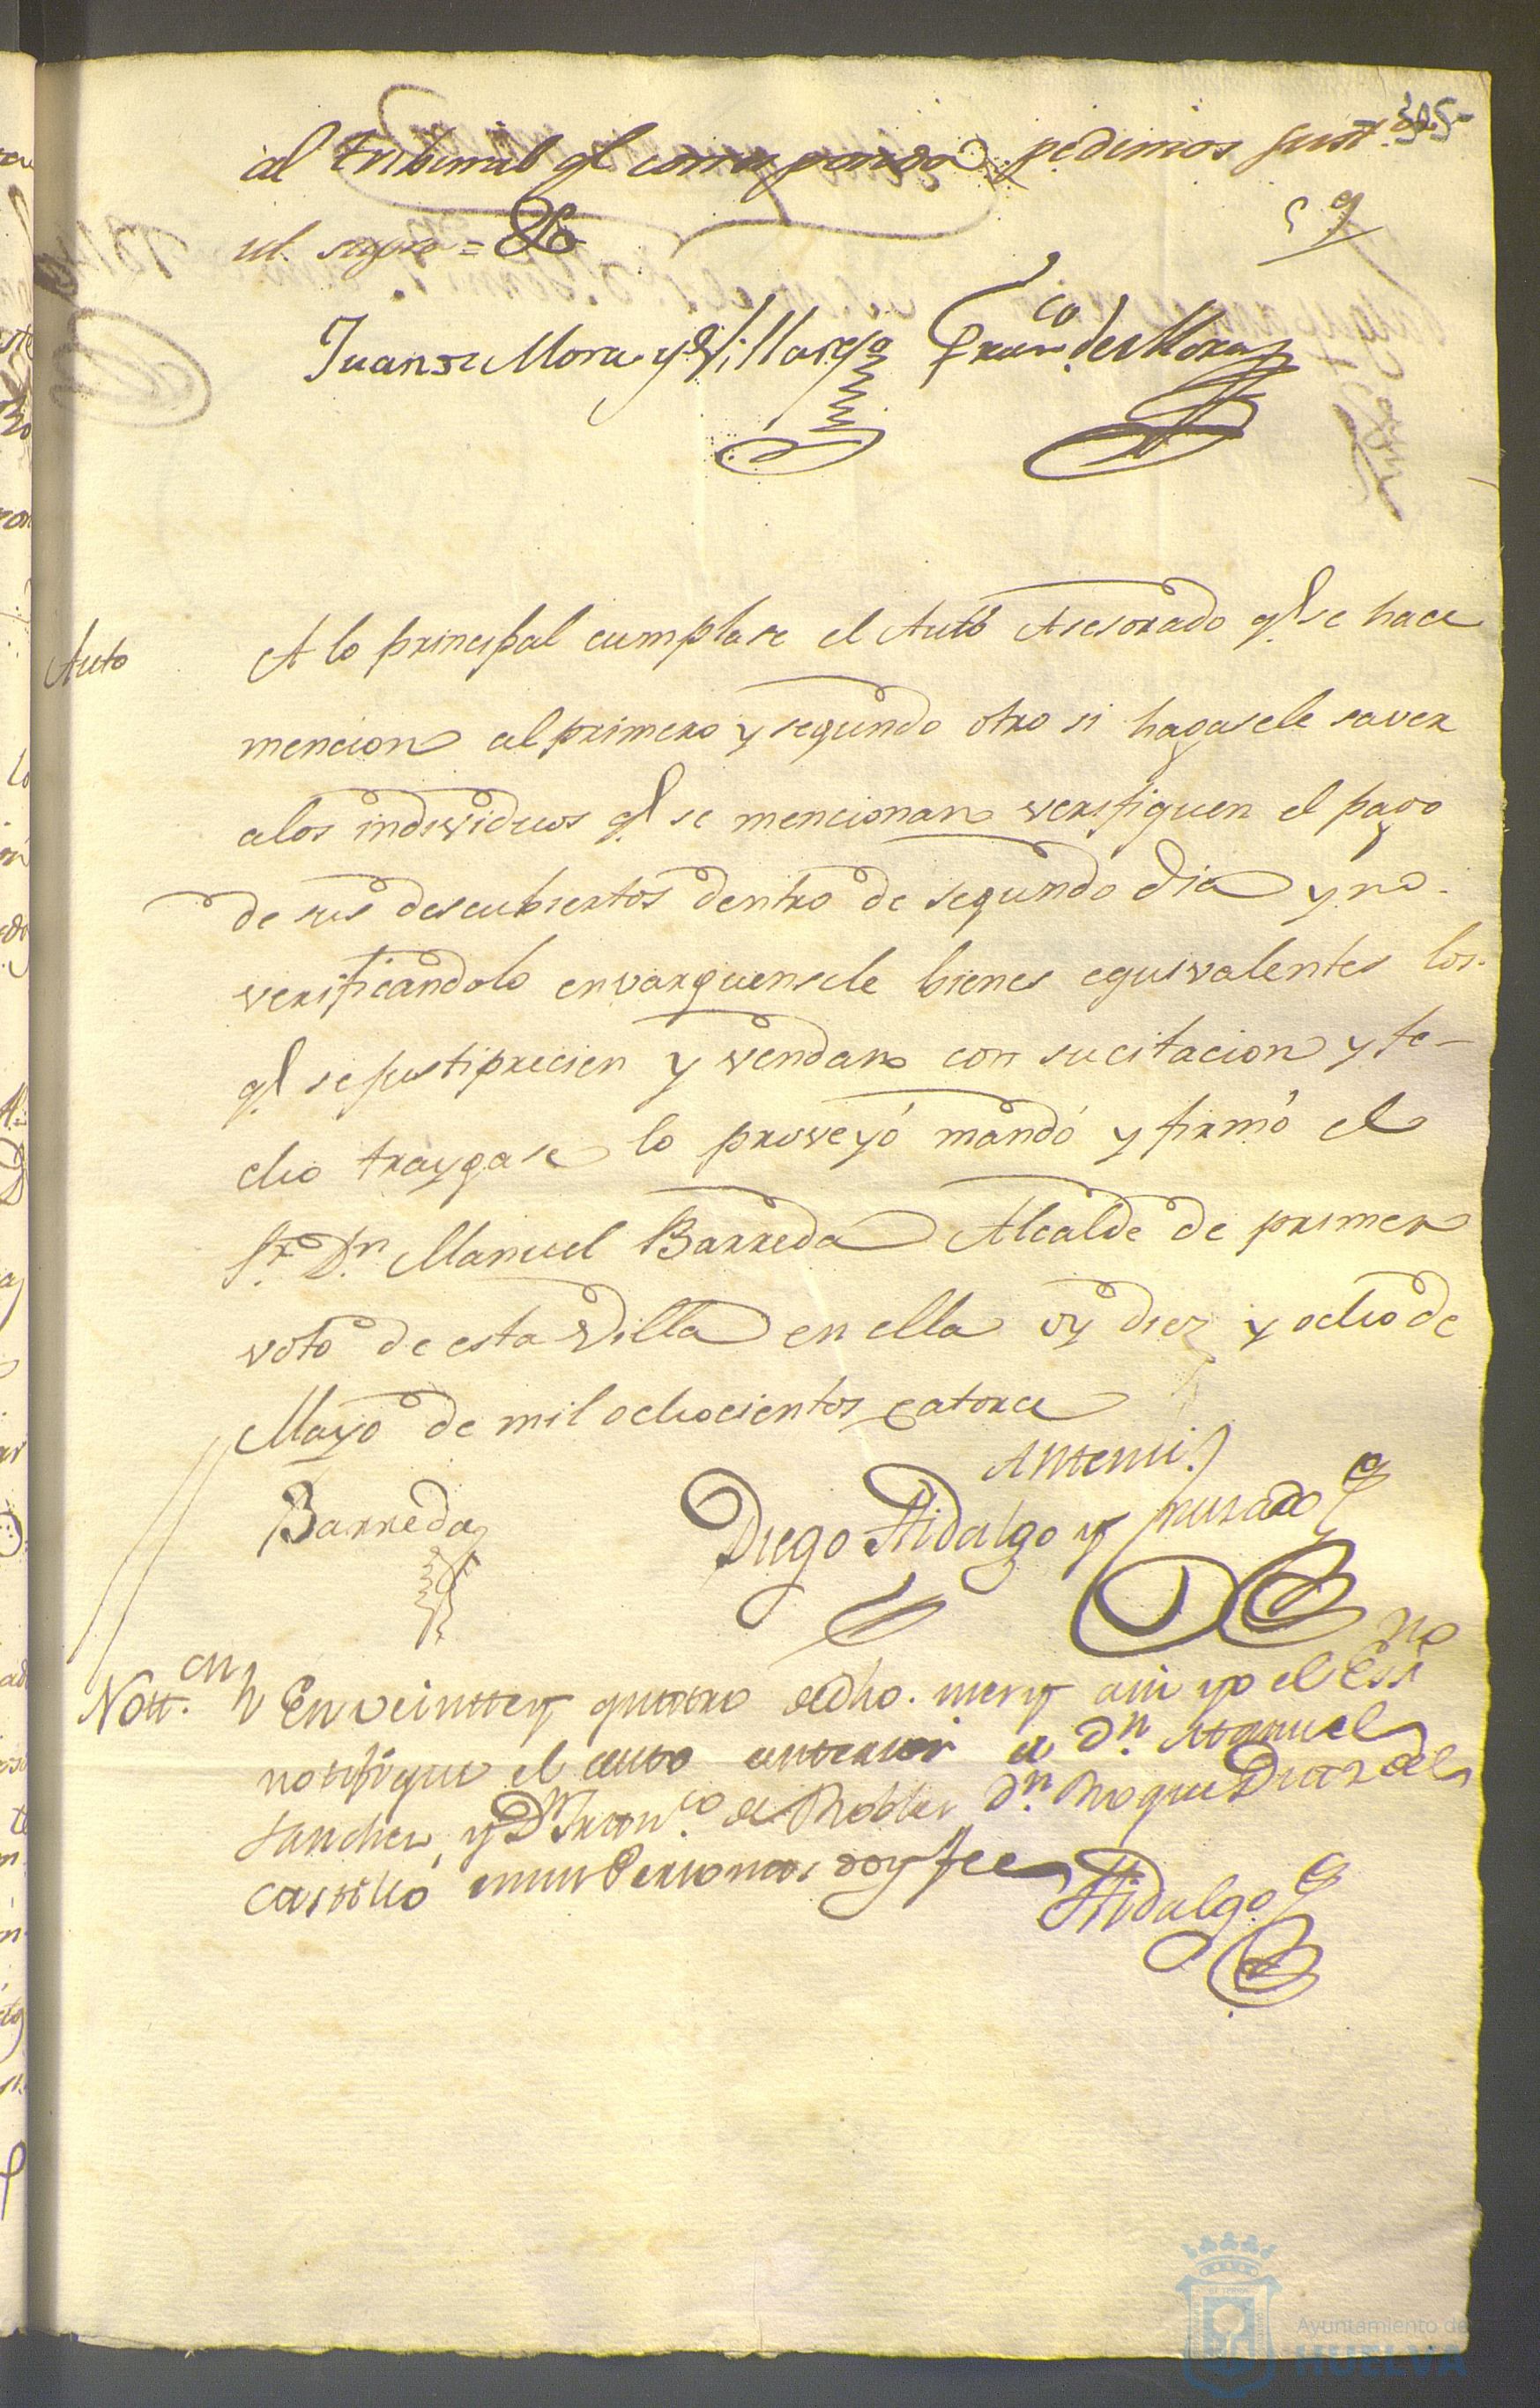 325
al tribunal qe. corresponda pedimos just.a
ut. supra =
Juan de Mora y Villarejo Fran.co de Mora
Auto
A lo principal cumplase el Auto Asesorado qe. se hace
mencion al primero y segundo otro si hagasele saver
alos individuos qe. se mencionan verifiquen el pago
de sus descubiertos dentro de segundo dia y no.
verificandolo envarguensele bienes equivalentes los.
qe. se justiprecien y vendan con sucitacion y fe-
cho traygase lo proveyó mandó y firmó el
Sr. Dn. Manuel Barreda Alcalde de primer
voto de esta Villa en ella oy diez y ocho de
Mayo de mil ochocientos catorce
Antemi
Barreda
Diego Hidalgo y Jurado
Nott.on En veintte y quatro de dho. mes y año yo el Essno
notifique el auto anterior a Dn. Manuel
Sanchez, y Dn. Fran.co de Robles Dn. Roque Diaz del
Castillo en sus Personas doy fee
Hidalgo
Ayuntamiento de
HUELVA